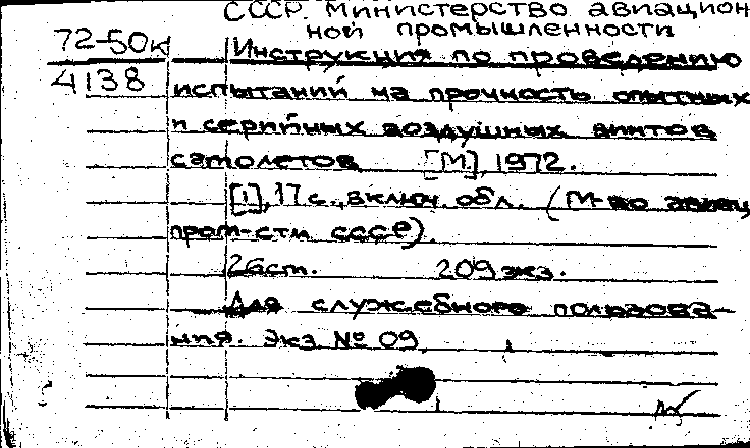 СССР. Министерство авиацион
ной промышленности
72-50к Инструкция по проведению
4138 испытаний на прочность опытных
и серийных воздушных винтов
самолетов [М], 1972.
[1], 17 с., включ. обл. (М-во авиац
пром-сти СССР).
26 см. 209 экз.
Для служебного пользова-
ния. Экз № 09